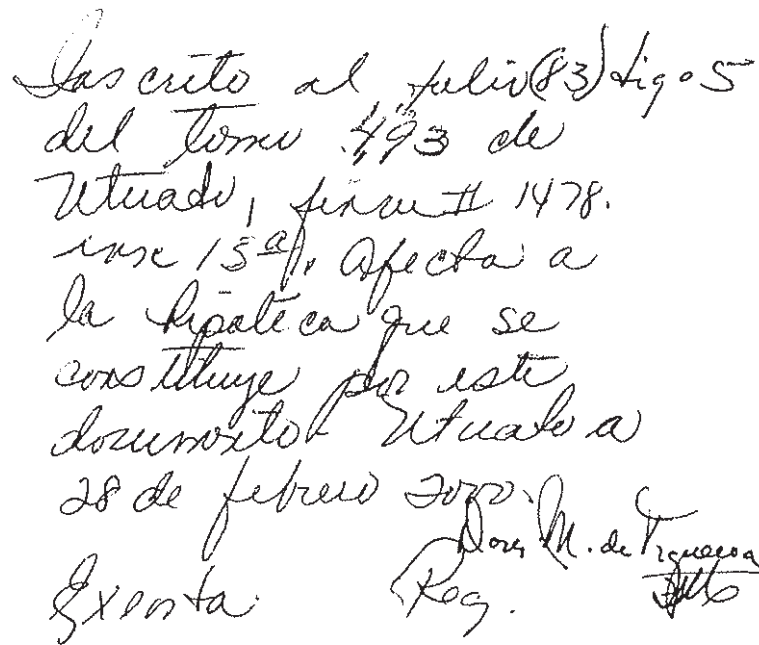 Inscrito al folio (83) digo 5
del tomo 493 de
Utuado, finca # 1478.
insc 15ª. Afecta a
la hipoteca que se
constituye por este
documento Utuado a
28 de febrero 2000.
M. de Figueroa
Exenta Reg.